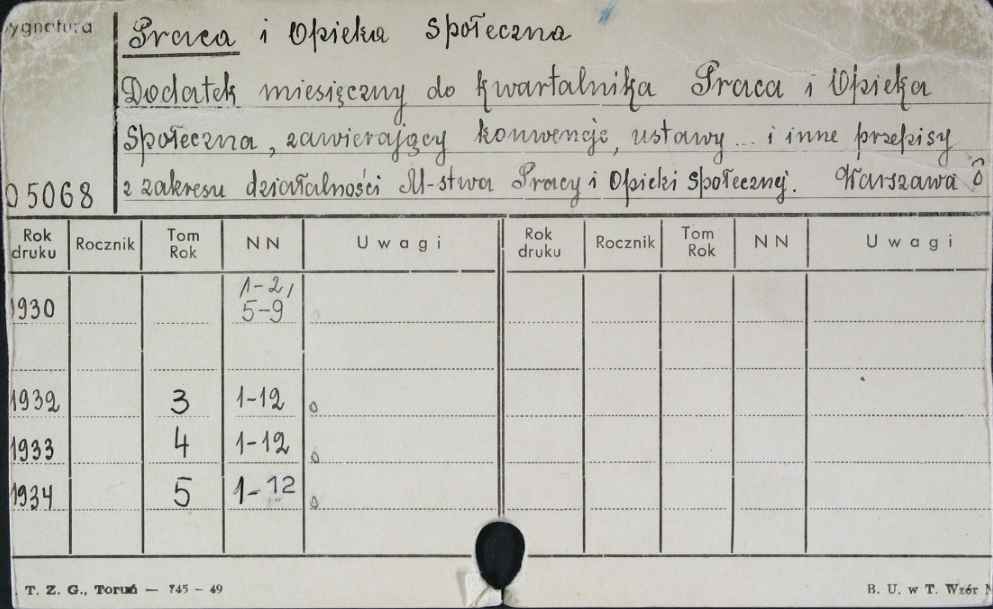 ygnatura
Praca i Opieka Społeczna
Dodatek miesięczny do kwartalnika Praca i Opieka
Społeczna, zawierający konwencje, ustawy ... i inne przepisy
05068 z zakresu działalności M-stwa Pracy i Opieki Społecznej. Warszawa
Rok druku Rocznik Tom Rok NN Uwagi Rok druku Rocznik Tom Rok NN Uwagi
1930 1-2,
5-9
1932 3 1-12
1933 4 1-12
1934 5 1-12
T. Z. G., Toruń — 745 - 49 B. U. w T. Wzór